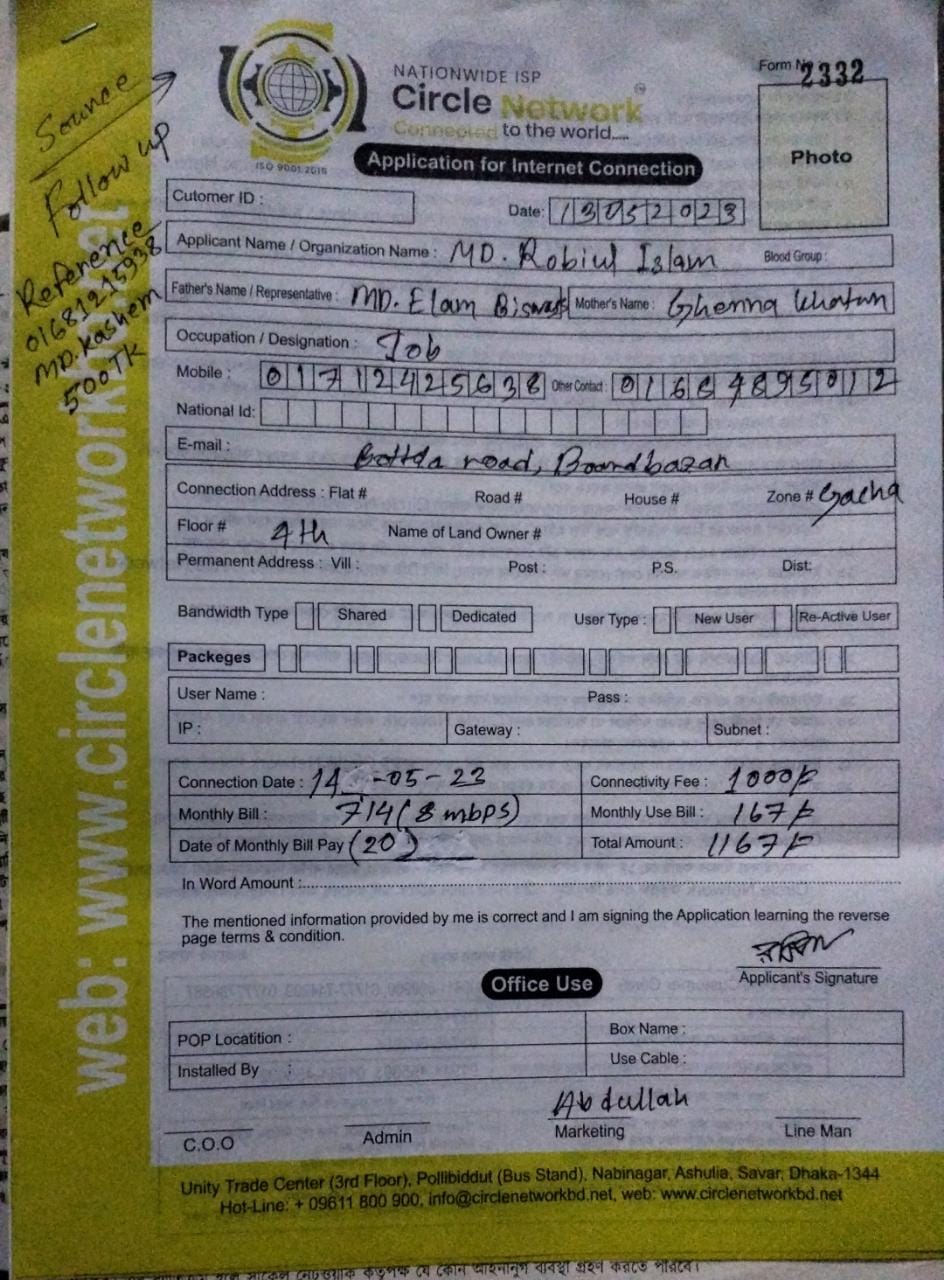 Form No 2332
NATIONWIDE ISP
Circle Network
Connected to the world....
ISO 9001:2015
Application for Internet Connection
Photo
Source
Follow up
Reference
01681215938
MD. Kashem
500TK
web: www.circlenetworkbd.net
Cutomer ID :
Date: 13052023
Applicant Name / Organization Name : MD. Robiul Islam Blood Group :
Father's Name / Representative : MD. Elam Biswas Mother's Name : Ghenna Khatun
Occupation / Designation : Job
Mobile : 01712425638 Other Contact : 01664895012
National Id:
E-mail :
Bottda road, Boardbazar
Connection Address : Flat # Road # House # Zone # Gacha
Floor # 4th Name of Land Owner #
Permanent Address : Vill : Post : P.S. Dist:
Bandwidth Type Shared Dedicated User Type : New User Re-Active User
Packeges
User Name : Pass :
IP : Gateway : Subnet :
Connection Date : 14 -05-23 Connectivity Fee : 1000/-
Monthly Bill : 714 (8 mbps) Monthly Use Bill : 167/-
Date of Monthly Bill Pay (20) Total Amount : 1167/-
In Word Amount :
The mentioned information provided by me is correct and I am signing the Application learning the reverse
page terms & condition.
রবিউল
Applicant's Signature
Office Use
POP Locatition : Box Name :
Installed By : Use Cable :
Abdullah
C.O.O Admin Marketing Line Man
Unity Trade Center (3rd Floor), Pollibiddut (Bus Stand), Nabinagar, Ashulia, Savar, Dhaka-1344
Hot-Line: + 09611 800 900, info@circlenetworkbd.net, web: www.circlenetworkbd.net